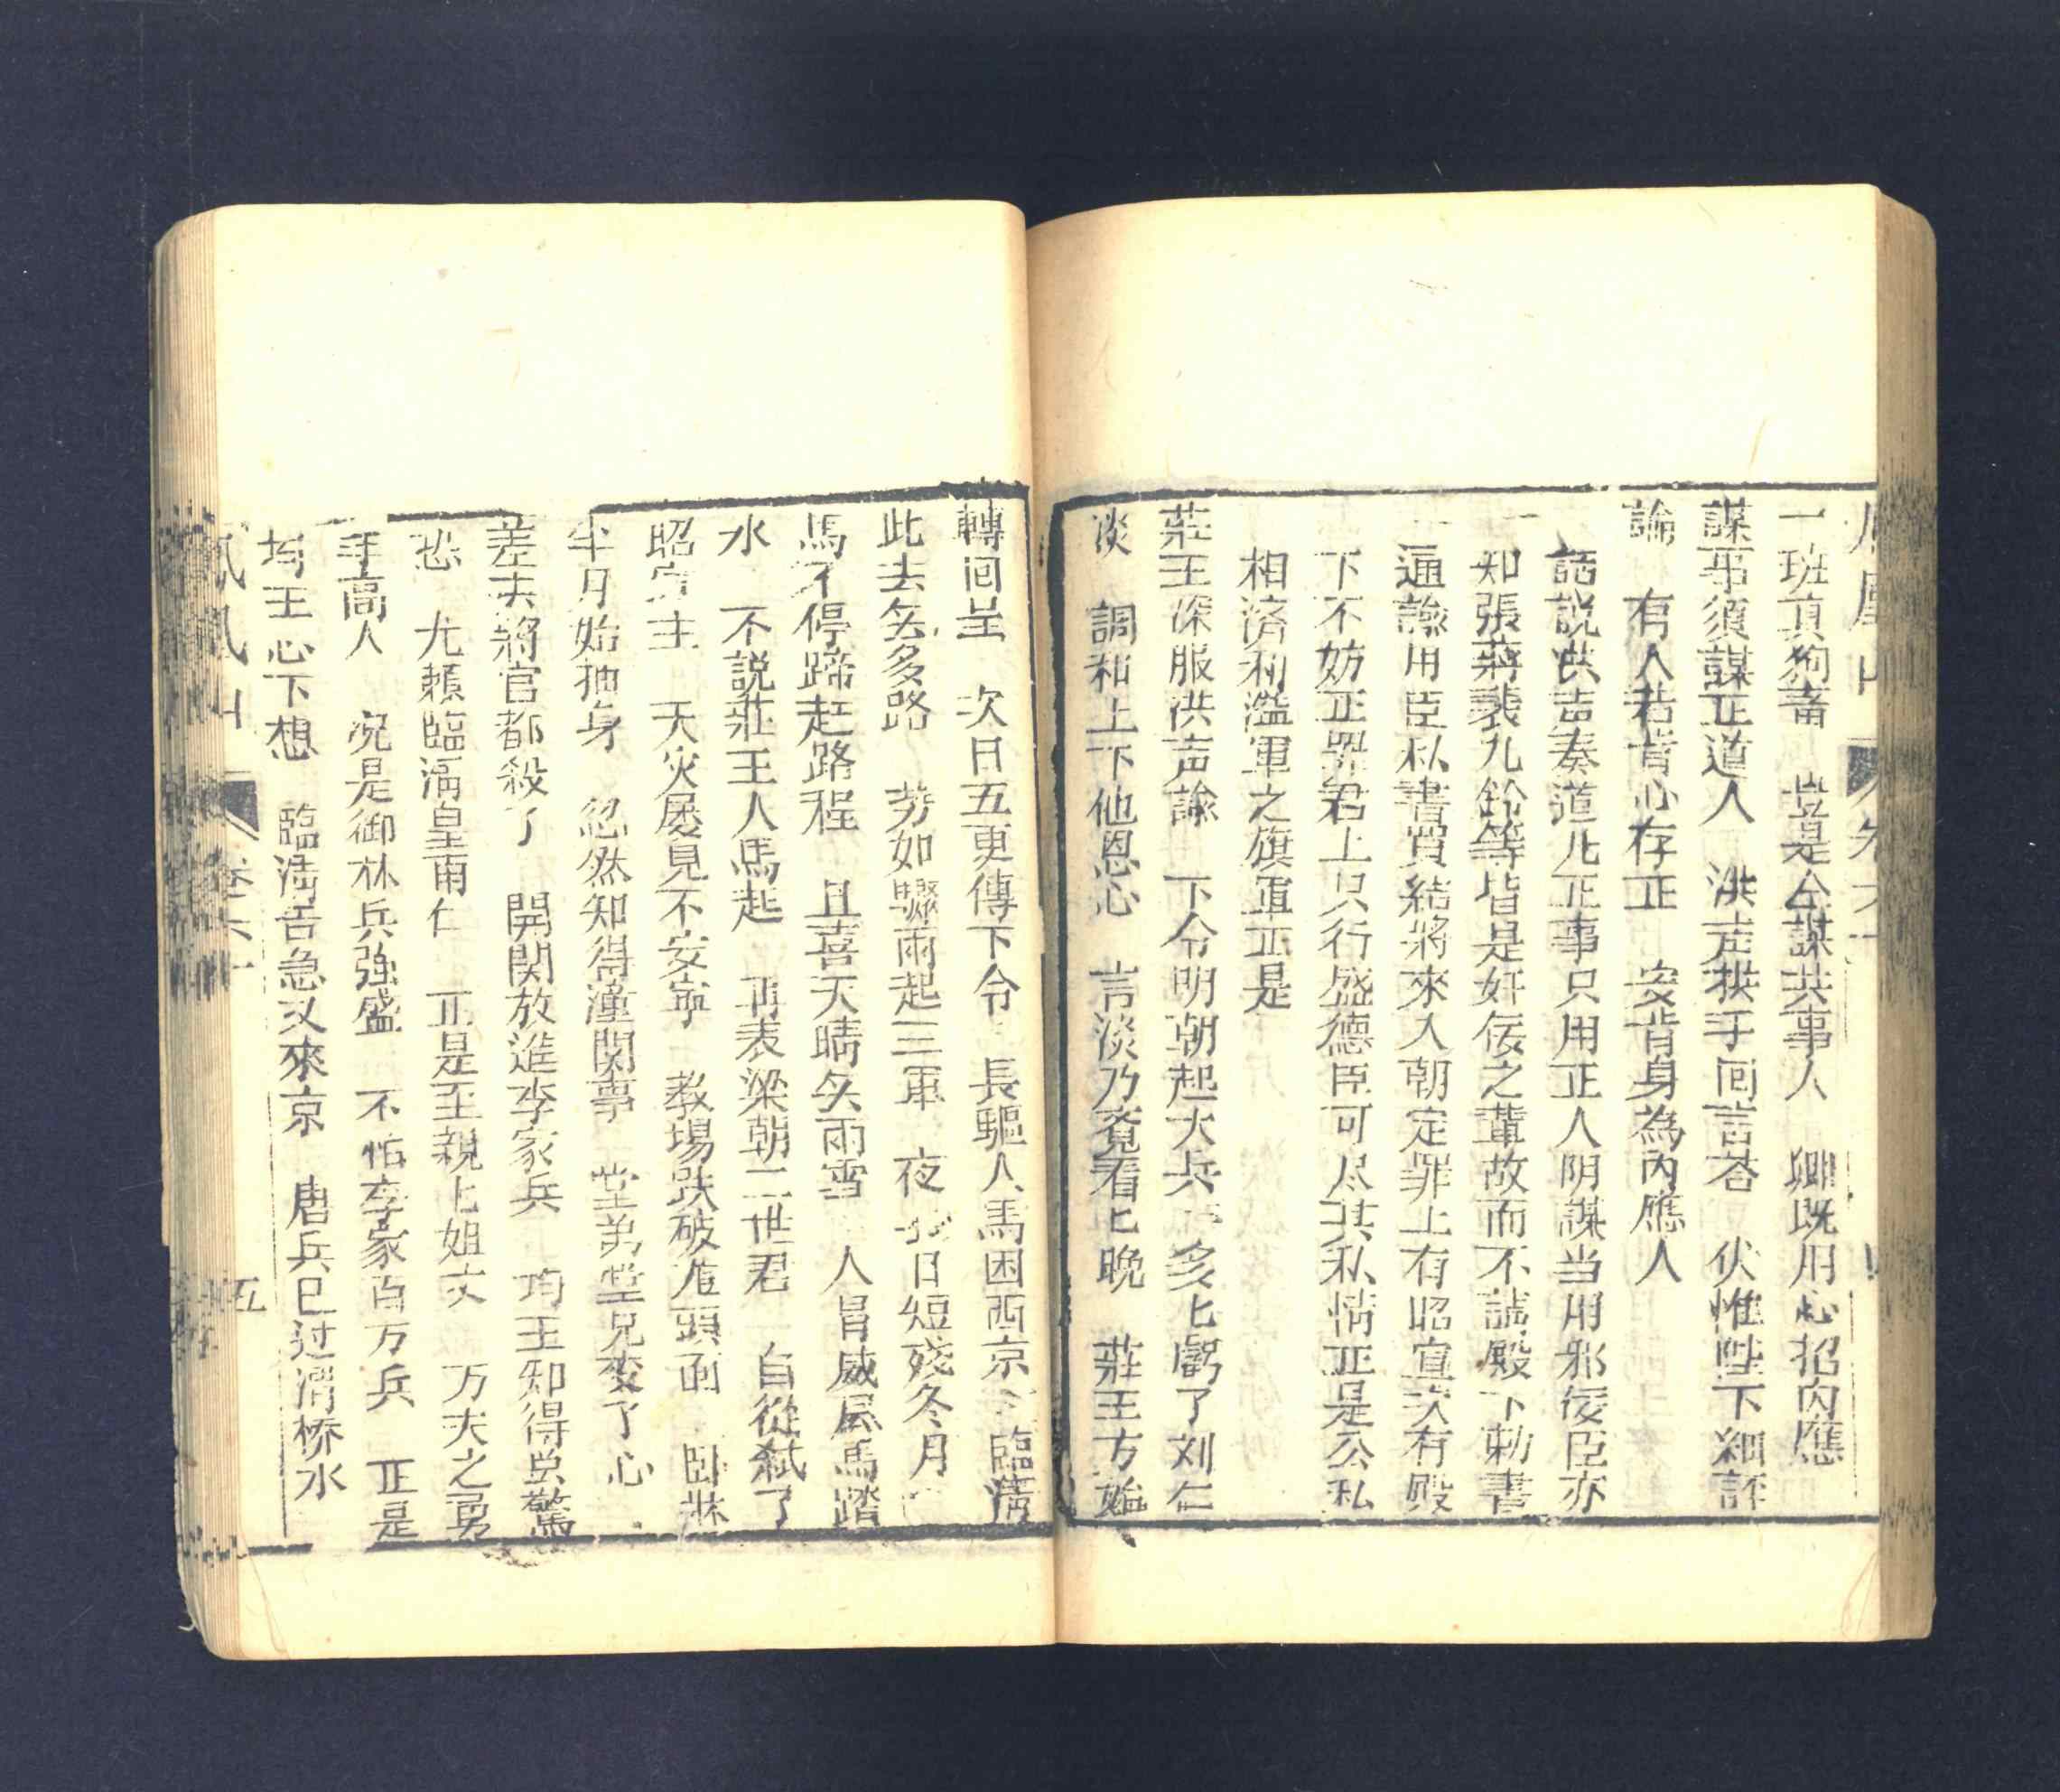 一班真狗畜　豈是仝謀共事人　卿既用心招內應
謀 須謀正道人　洪 拱手回言荅　伏惟陛下細
論　有人若肯心存正　安肯身為內應人
話說洪声奏道凡正事只用正人阴謀当用邪佞臣亦
知張蔣裴九鈴等皆是奸佞之輩故而不 殿下勅書
一通諭用臣私書買結將來入朝定罪上有昭宣次有殿
下不妨正罪君上只行盛德臣可尽其私情正是公私
相済利濫軍之旗 正是
莊王深服洪声諭　下令明朝起大兵　多匕虧了刘仁
淡　調和上下他恩心　言淡乃 看匕晚　莊王方始
轉回呈　次日五更傳下令　長驅人馬困西京　臨
此去矣多路　 如驟雨起三軍　夜 日短殘冬月
馬不停蹄赶路程　且喜天晴矣雨雪　人冒威 馬踏
水　不說莊王人馬起　再表梁朝二世君　自從弑了
昭宗主　天灾屡見不安寧　教場跌破 頭 　卧牀
半月始抽身　忽然知得潼関事　堂弟堂兄変了心
差去將官都殺了　開関放進李家兵　均王知得 驚
恐　尤賴臨 皇甫仁　正是至親匕姐丈　万夫之勇
手高人　况是御林兵強盛　不怕李家百万兵　正是
均王心下想　臨 告急又來京　唐兵已过渭桥水
鳳凰山
卷六十
五